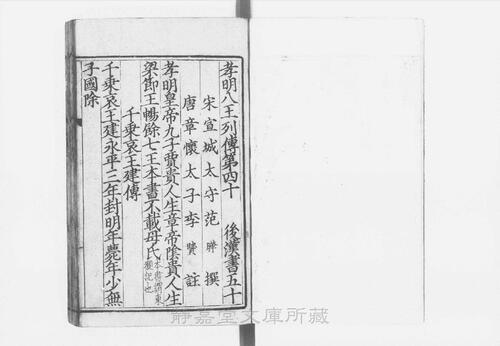 孝明八王列傳第四十 後漢書五十
宋宣城太守范曄撰
唐章懷太子李賢註
孝明皇帝九子賈貴人生章帝陰貴人生
梁節王暢餘七王本書不載母氏本書謂東觀記也
千乗哀王建傳
千乗哀王建永平三年封明年薨年少無
子國除
靜嘉堂文庫所藏